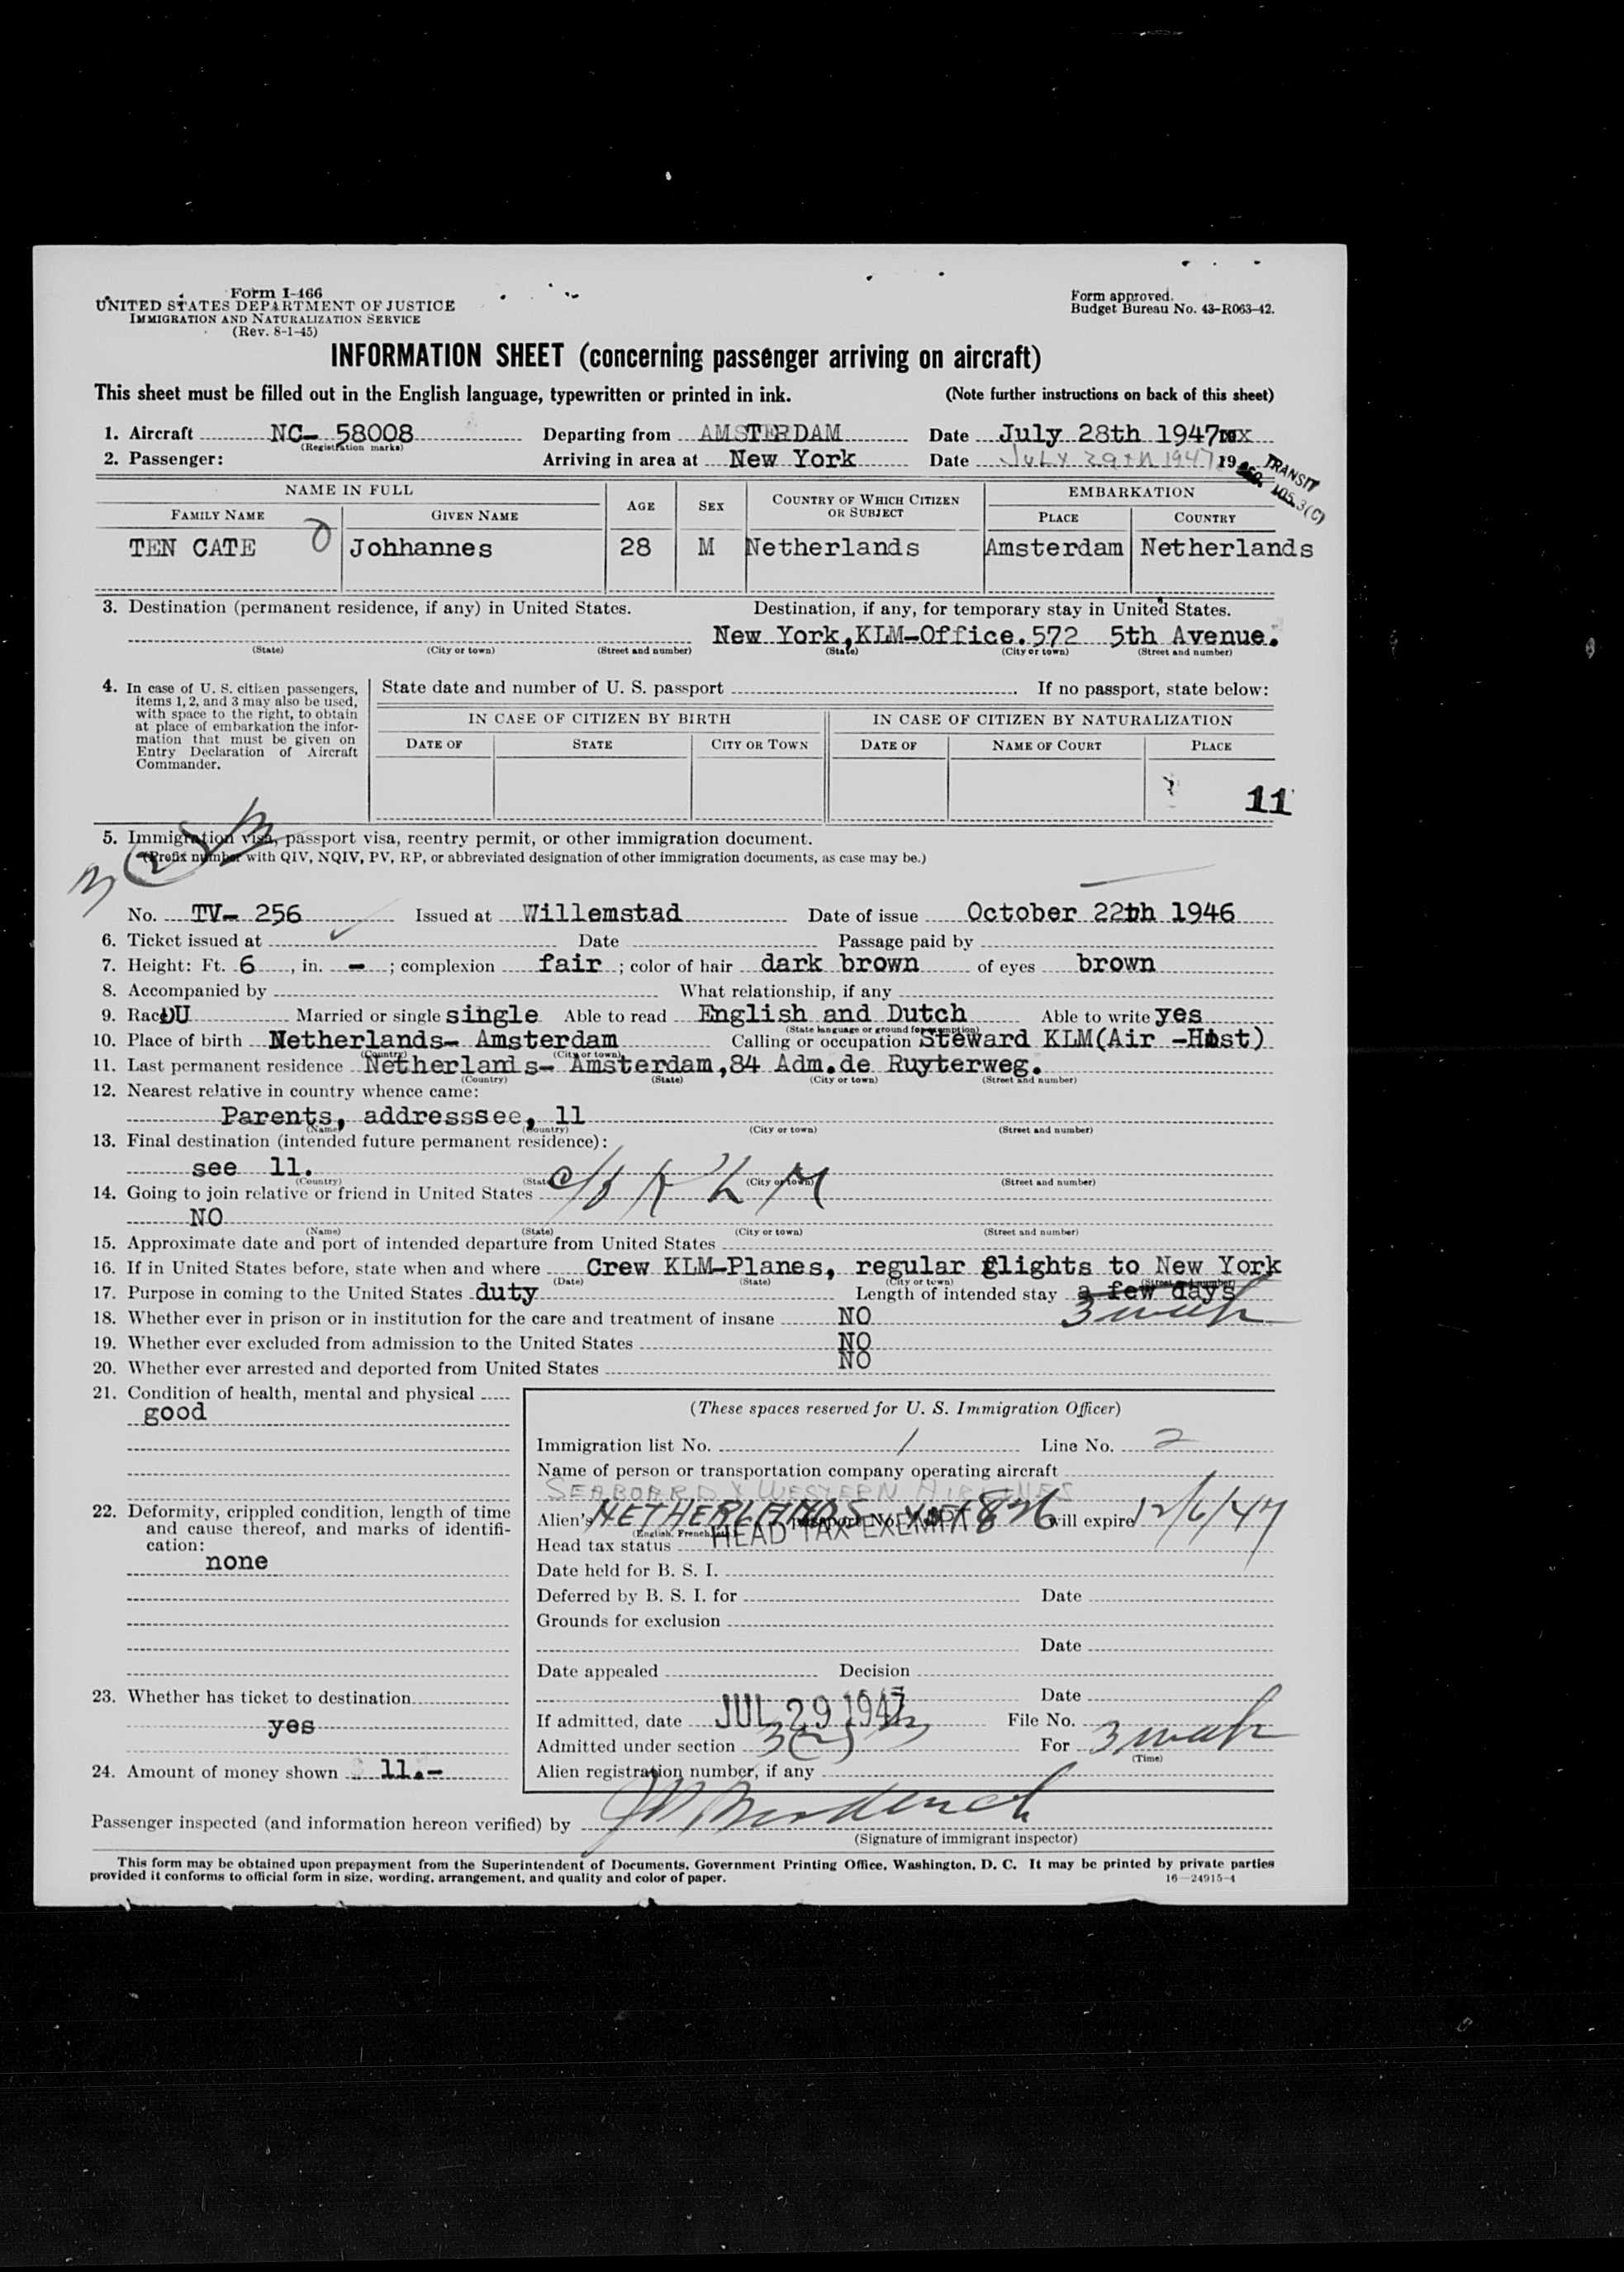 Form I-466
UNITED STATES DEPARTMENT OF JUSTICE
IMMIGRATION AND NATURALIZATION SERVICE
(Rev. 8-1-45)
Form approved.
Budget Bureau No. 43-R063-42.
INFORMATION SHEET (concerning passenger arriving on aircraft)
This sheet must be filled out in the English language, typewritten or printed in ink. (Note further instructions on back of this sheet)
1. Aircraft NC- 58008 Departing from AMSTERDAM Date July 28th 1947
(Registration marks)
2. Passenger: Arriving in area at New York Date JULY 29TH 1947 19
TRANSIT
105.3(C)
NAME IN FULL AGE SEX COUNTRY OF WHICH CITIZEN OR SUBJECT EMBARKATION
FAMILY NAME GIVEN NAME PLACE COUNTRY
TEN CATE Johhannes 28 M Netherlands Amsterdam Netherlands
3. Destination (permanent residence, if any) in United States. Destination, if any, for temporary stay in United States.
New York, KLM-Office. 572 5th Avenue.
(State) (City or town) (Street and number) (State) (City or town) (Street and number)
4. In case of U. S. citizen passengers, items 1, 2, and 3 may also be used, with space to the right, to obtain at place of embarkation the information that must be given on Entry Declaration of Aircraft Commander.
State date and number of U. S. passport . If no passport, state below:
IN CASE OF CITIZEN BY BIRTH IN CASE OF CITIZEN BY NATURALIZATION
DATE OF STATE CITY OR TOWN DATE OF NAME OF COURT PLACE
11
5. Immigration visa, passport visa, reentry permit, or other immigration document.
(Prefix number with QIV, NQIV, PV, RP, or abbreviated designation of other immigration documents, as case may be.)
No. TV- 256 Issued at Willemstad Date of issue October 22th 1946
6. Ticket issued at Date Passage paid by
7. Height: Ft. 6, in. - ; complexion fair ; color of hair dark brown of eyes brown
8. Accompanied by What relationship, if any
9. Race DU Married or single single Able to read English and Dutch Able to write yes
(State language or ground for exemption)
10. Place of birth Netherlands- Amsterdam Calling or occupation Steward KLM(Air -Host)
(Country) (City or town)
11. Last permanent residence Netherlands- Amsterdam,84 Adm.de Ruyterweg.
(Country) (State) (City or town) (Street and number)
12. Nearest relative in country whence came:
Parents, addresssee, 11
(Name) (Country) (City or town) (Street and number)
13. Final destination (intended future permanent residence):
see 11.
(Country) (State) (City or town) (Street and number)
14. Going to join relative or friend in United States c/o K L M
NO
(Name) (State) (City or town) (Street and number)
15. Approximate date and port of intended departure from United States
16. If in United States before, state when and where Crew KLM-Planes, regular flights to New York
(Date) (State) (City or town) (Street and number)
17. Purpose in coming to the United States duty Length of intended stay a few days
18. Whether ever in prison or in institution for the care and treatment of insane NO
19. Whether ever excluded from admission to the United States NO
20. Whether ever arrested and deported from United States NO
21. Condition of health, mental and physical
good
22. Deformity, crippled condition, length of time and cause thereof, and marks of identification:
none
23. Whether has ticket to destination
yes
24. Amount of money shown 11.-
(These spaces reserved for U. S. Immigration Officer)
Immigration list No. 1 Line No. 2
Name of person or transportation company operating aircraft
SEABOARD & WESTERN AIRLINES
Alien's NETHERLANDS passport No. will expire 12/6/47
Head tax status HEAD TAX EXEMPT
Date held for B. S. I.
Deferred by B. S. I. for Date
Grounds for exclusion
Date
Date appealed Decision
Date
If admitted, date JUL 29 1947 File No.
Admitted under section 3(2) For
(Time)
Alien registration number, if any
Passenger inspected (and information hereon verified) by
(Signature of immigrant inspector)
This form may be obtained upon prepayment from the Superintendent of Documents, Government Printing Office, Washington, D. C. It may be printed by private parties
provided it conforms to official form in size, wording, arrangement, and quality and color of paper. 16-24915-4